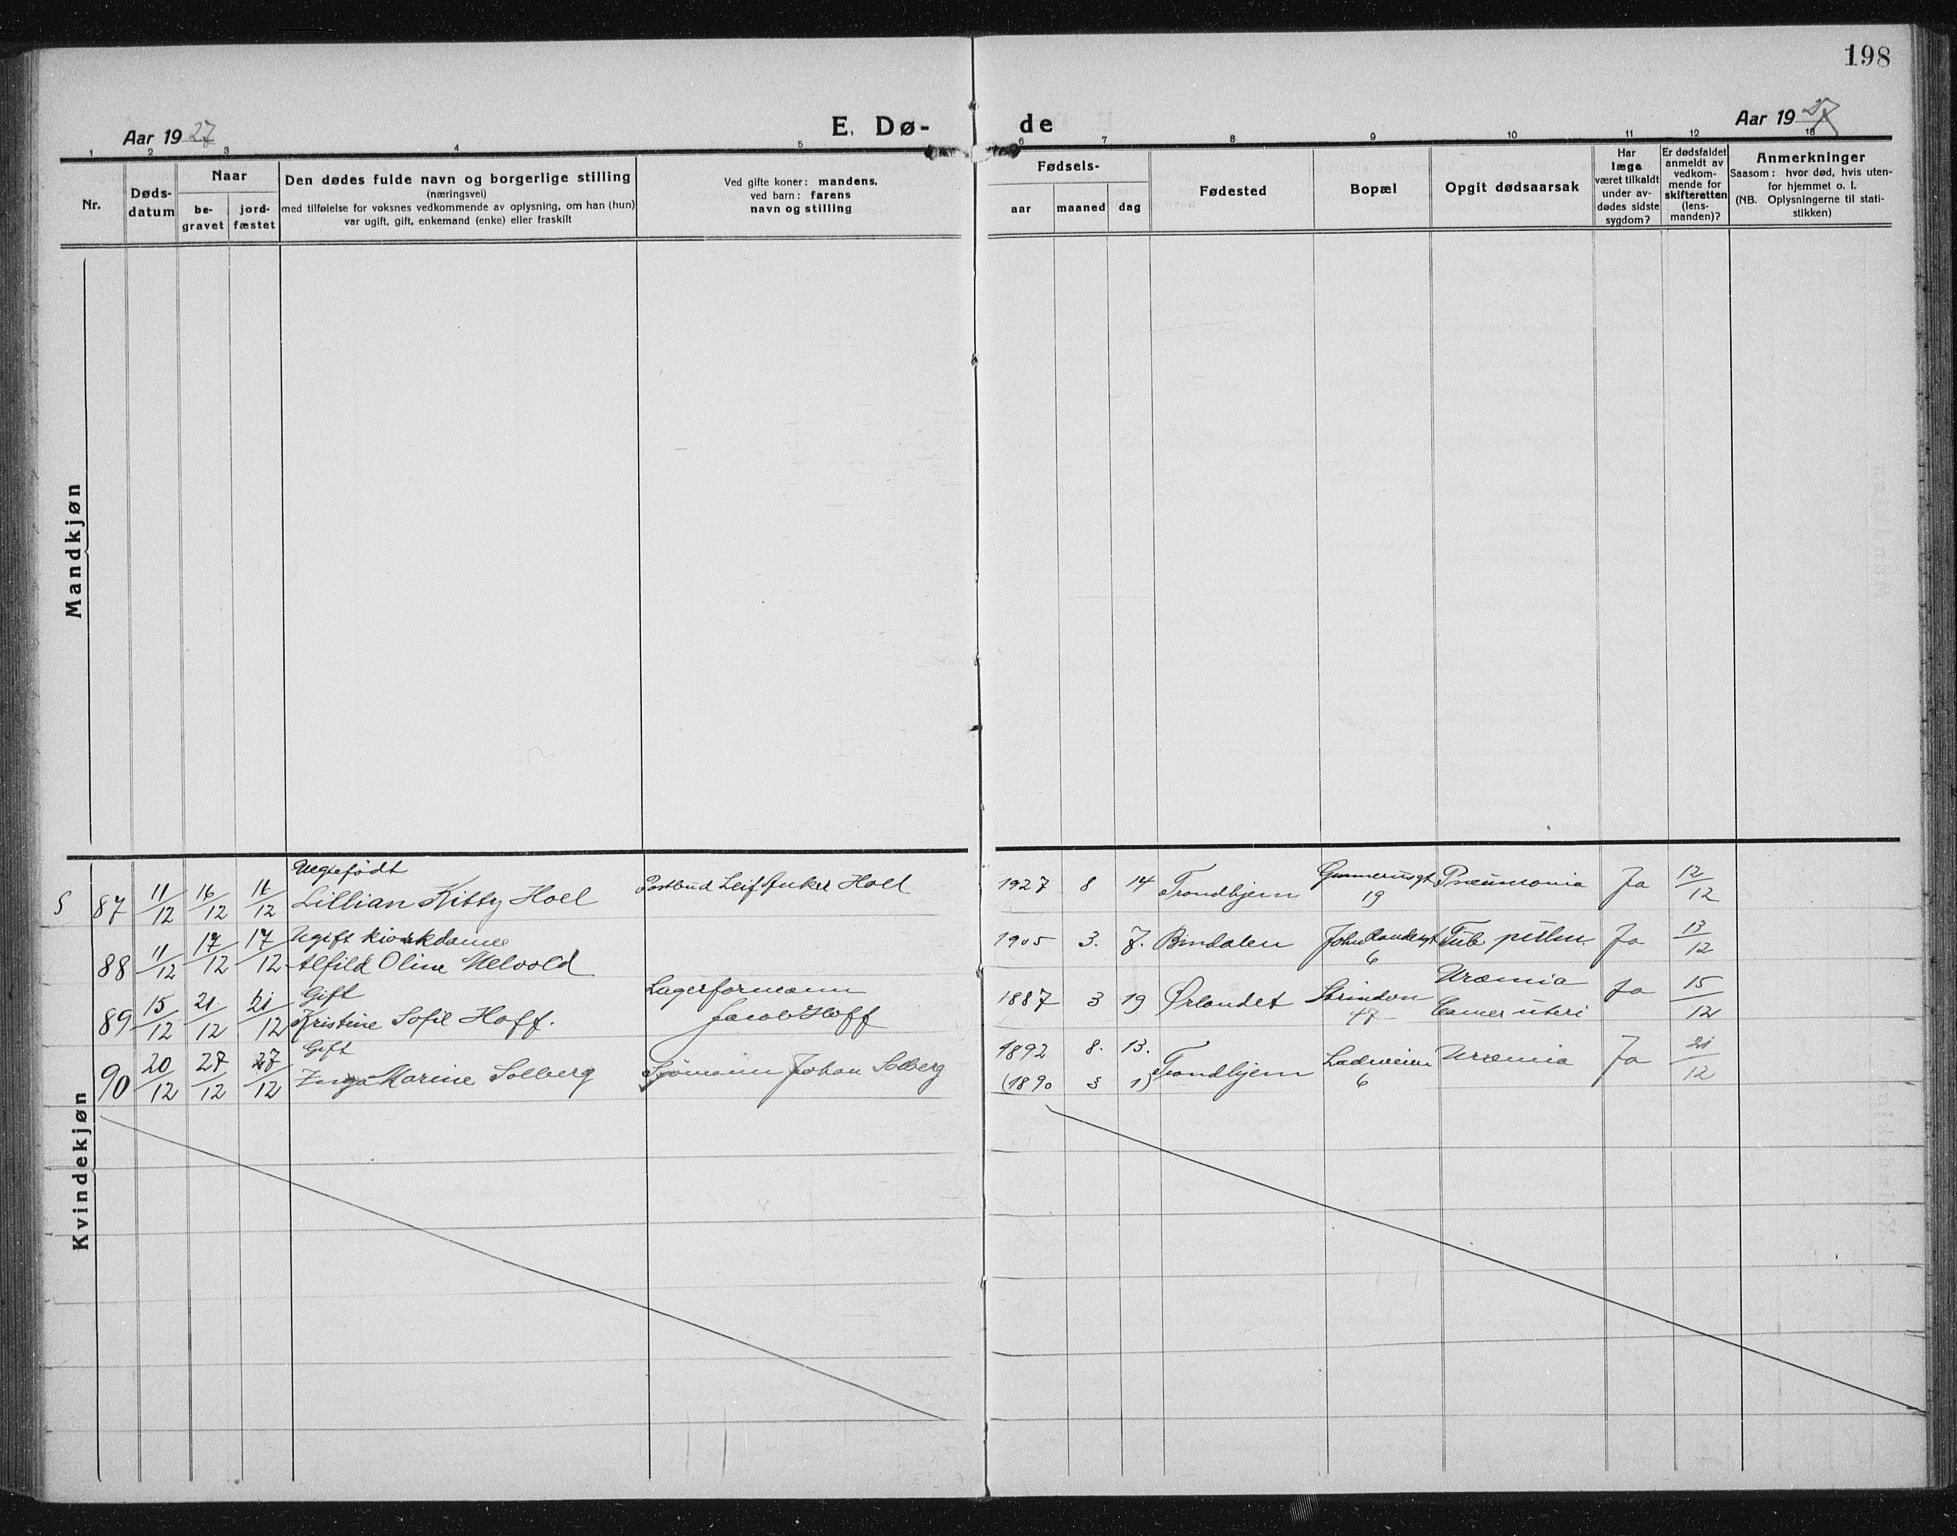 198
Aar 1927
E. Dø-
de
Aar 1927
1 2 3 4 5 6 7 8 9 10 11 12 13
Nr.
Døds-
datum
Naar
be-
gravet
jord-
fæstet
Den dødes fulde navn og borgerlige stilling
(næringsvei)
med tilføielse for voksnes vedkommende av oplysning, om han (hun)
var ugift, gift, enkemand (enke) eller fraskilt
Ved gifte koner: mandens,
ved barn: farens
navn og stilling
Fødsels-
aar
maaned
dag
Fødested
Bopæl
Opgit dødsaarsak
Har
læge
været tilkaldt
under av-
dødes sidste
sygdom?
Er dødsfaldet
anmeldt av
vedkom-
mende for
skifteretten
(lens-
manden)?
Anmerkninger
Saasom: hvor død, hvis uten-
for hjemmet o. l.
(NB. Oplysningerne til stati-
stikken)
Mandkjøn
Kvindekjøn
Uegtefødt
S 87 11/12 16/12 11/12 Lillian Kitty Hoel Postbud Leif Anker Hoel 1927 8 14 Trondhjem Gunnerusgt 19 Pneumonia Ja 12/12
Ugift kioskdame
88 11/12 17/12 17/12 Alfild Oline Melvold 1905 3. 7. Bindalen 6 Tub. Ja 13/12
Gift Lagerformann Uræmia
89 15/12 21/12 21/12 Kristine Sofie Hoff. Jacob Hoff 1887 3 19 Ørlandet Strinden 47 Cancer uteri Ja 15/12
Gift
90 20/12 27/12 27/12 Inga Marine Solberg Sjømann Johan Solberg 1892 8. 13. Trondhjem Ladeveien 6 Uræmia Ja 21/12
(1890 3 1)